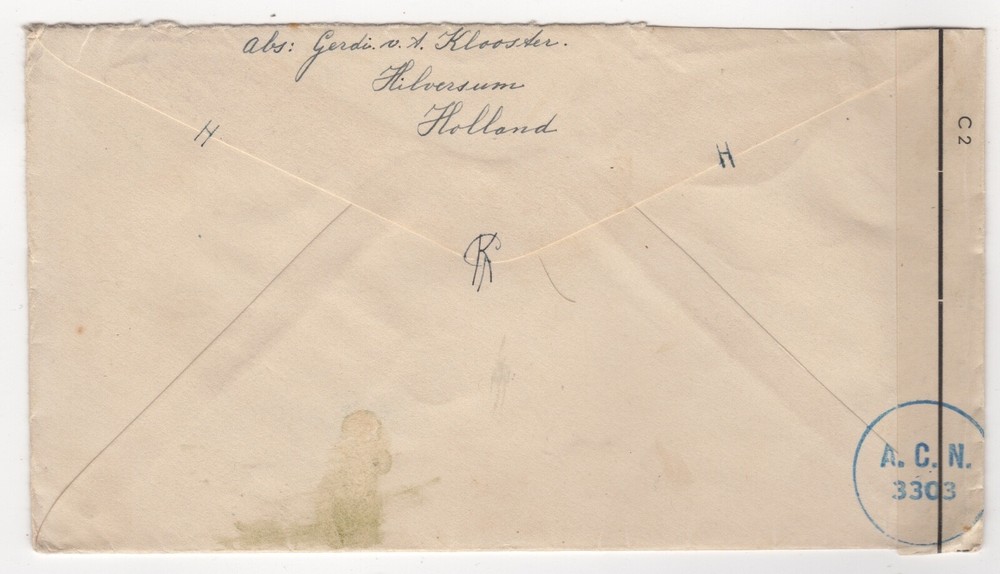 Abs: Gerdi. v. d. Klooster.
Hilversum
Holland
H
H
C 2
A. C. N.
3303